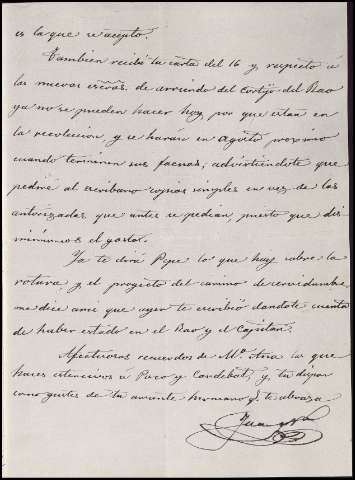 es la que se acepto.
Tambien recibi tu carta del 16 y respecto á
las nuevas escras. de arriendo del Cortijo del Bao
ya no se pueden hacer hoy, por que estan en
la recoleccion, y se harán en agosto proximo
cuando terminen sus faenas; advirtiendote que
pediré al escribano copias simples en vez de las
autorizadas que antes se pedian, puesto que dis
minuimos el gasto.
Ya te dirá Pepe lo que hay sobre la
rotura, y el proyecto del camino de servidumbre,
me dice ami que ayer te escribió dandote cuenta
de haber estado en el Bao y el Capitan.
Afectuosos recuerdos de Mª. lo que
haces estensivos á Paco y Candebat, y tu dispon
como gustes de tu amante hermano q. te abraza
Juan